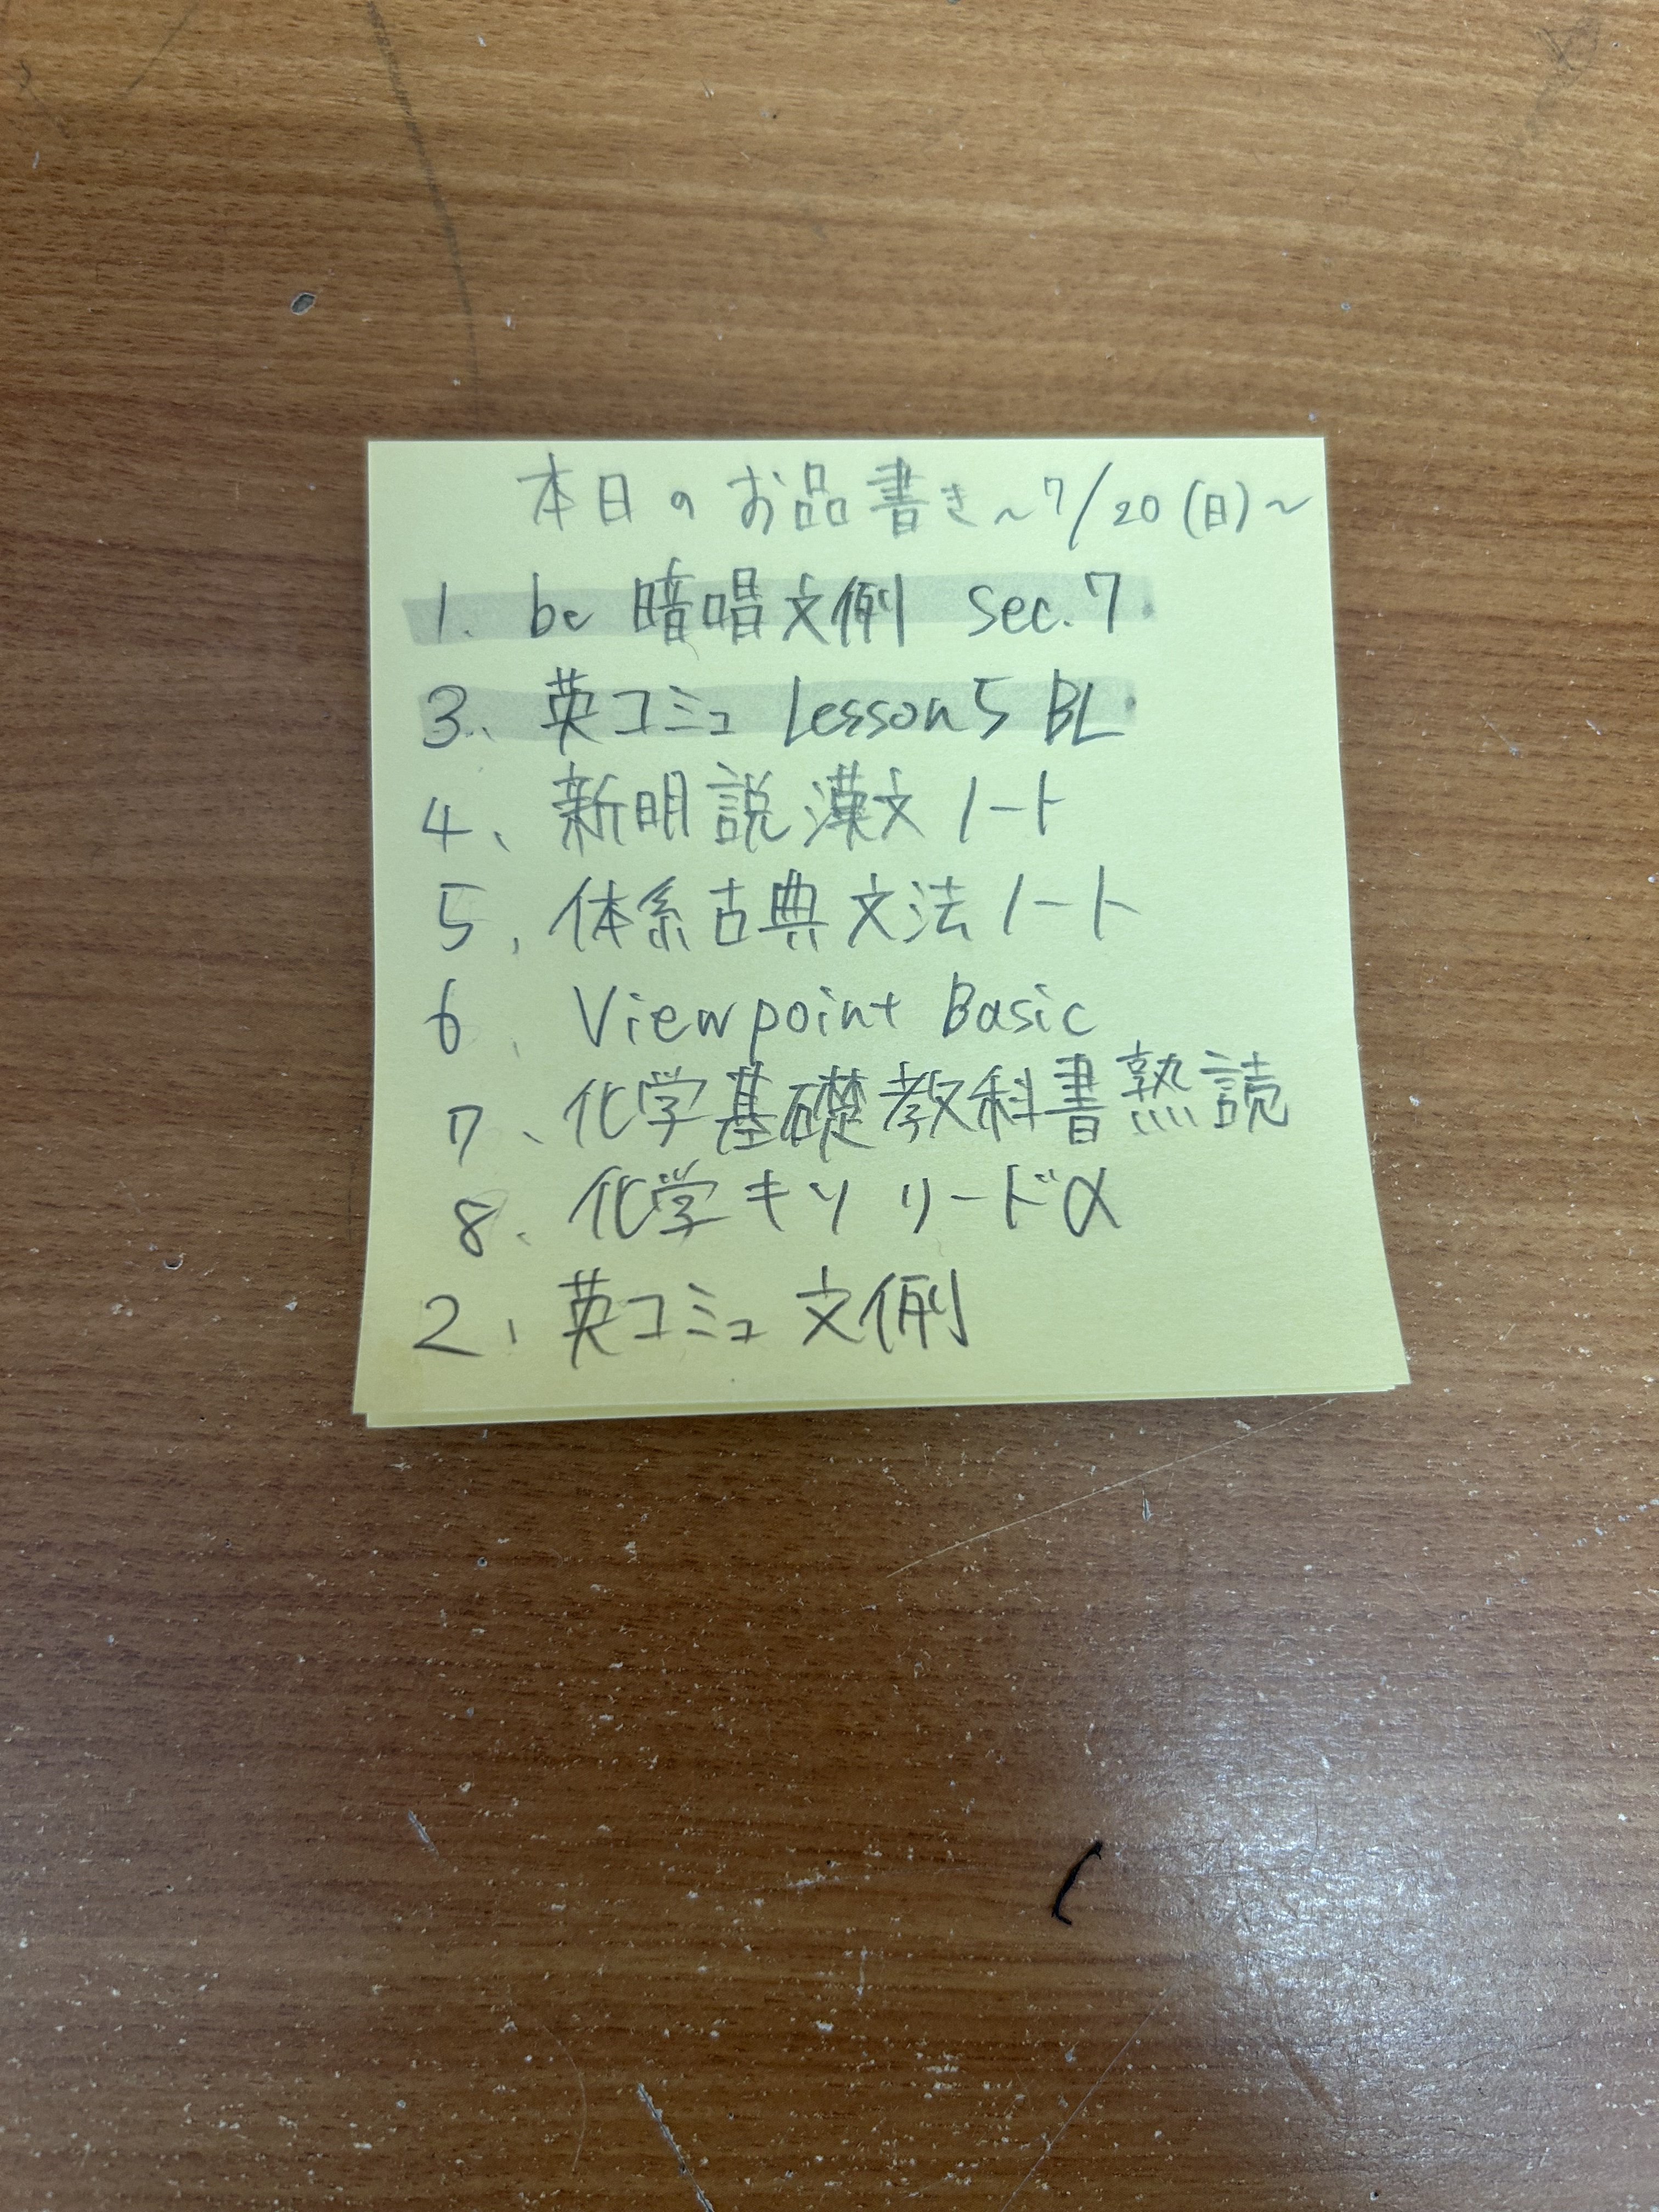 本日のお品書き〜7/20(日)〜
1. be 暗唱文例 sec.7
3、英コミュ Lesson5 BL
4、新明説漢文ノート
5、体系古典文法ノート
6、Viewpoint Basic
7、化学基礎教科書熟読
8、化学キソ リードα
2、英コミュ文例